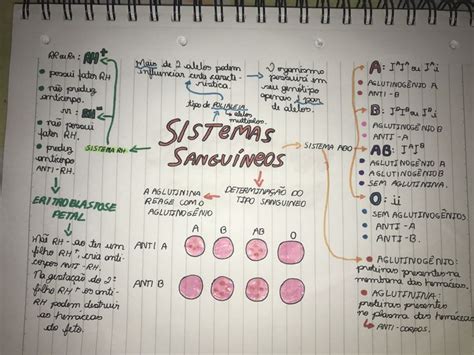 RR ou Rr: RH+
• possui fator RH
• não produz
anticorpo.
rr: RH-
• não possui
fator RH.
• produz
anticorpo
ANTI-RH.
SISTEMA RH
ERITROBLASTOSE
FETAL
Mãe RH- ao ter um
filho RH+, cria anti-
corpos ANTI-RH.
Na gestação do 2º
filho RH+ os anti-
RH podem destruir
as hemáceas
do feto.
Mais de 2 alelos podem
influenciar certa caracte-
rística.
tipo de POLIALELIA
alelos
múltiplos.
O organismo
possuirá em
seu genótipo
apenas 1 par
de alelos.
SISTEMAS
SANGUÍNEOS
A AGLUTININA
REAGE COM O
AGLUTINOGÊNIO
DETERMINAÇÃO DO
TIPO SANGUINEO
A B AB O
ANTI A
ANTI B
SISTEMA ABO
A: IᴬIᴬ ou Iᴬi
• AGLUTINOGÊNIO A
• ANTI-B
B: IᴮIᴮ ou Iᴮi
• AGLUTINOGÊNIO B
• ANTI-A
AB: IᴬIᴮ
• AGLUTINOGÊNIO A
• AGLUTINOGÊNIO B
• SEM AGLUTININA.
O: ii
• SEM AGLUTINOGÊNIOS
• ANTI-A
• ANTI-B.
• AGLUTINOGÊNIO:
proteínas presentes na
membrana das hemáceas.
• AGLUTININA:
proteínas presentes
no plasma das hemáceas
ANTI-CORPOS.